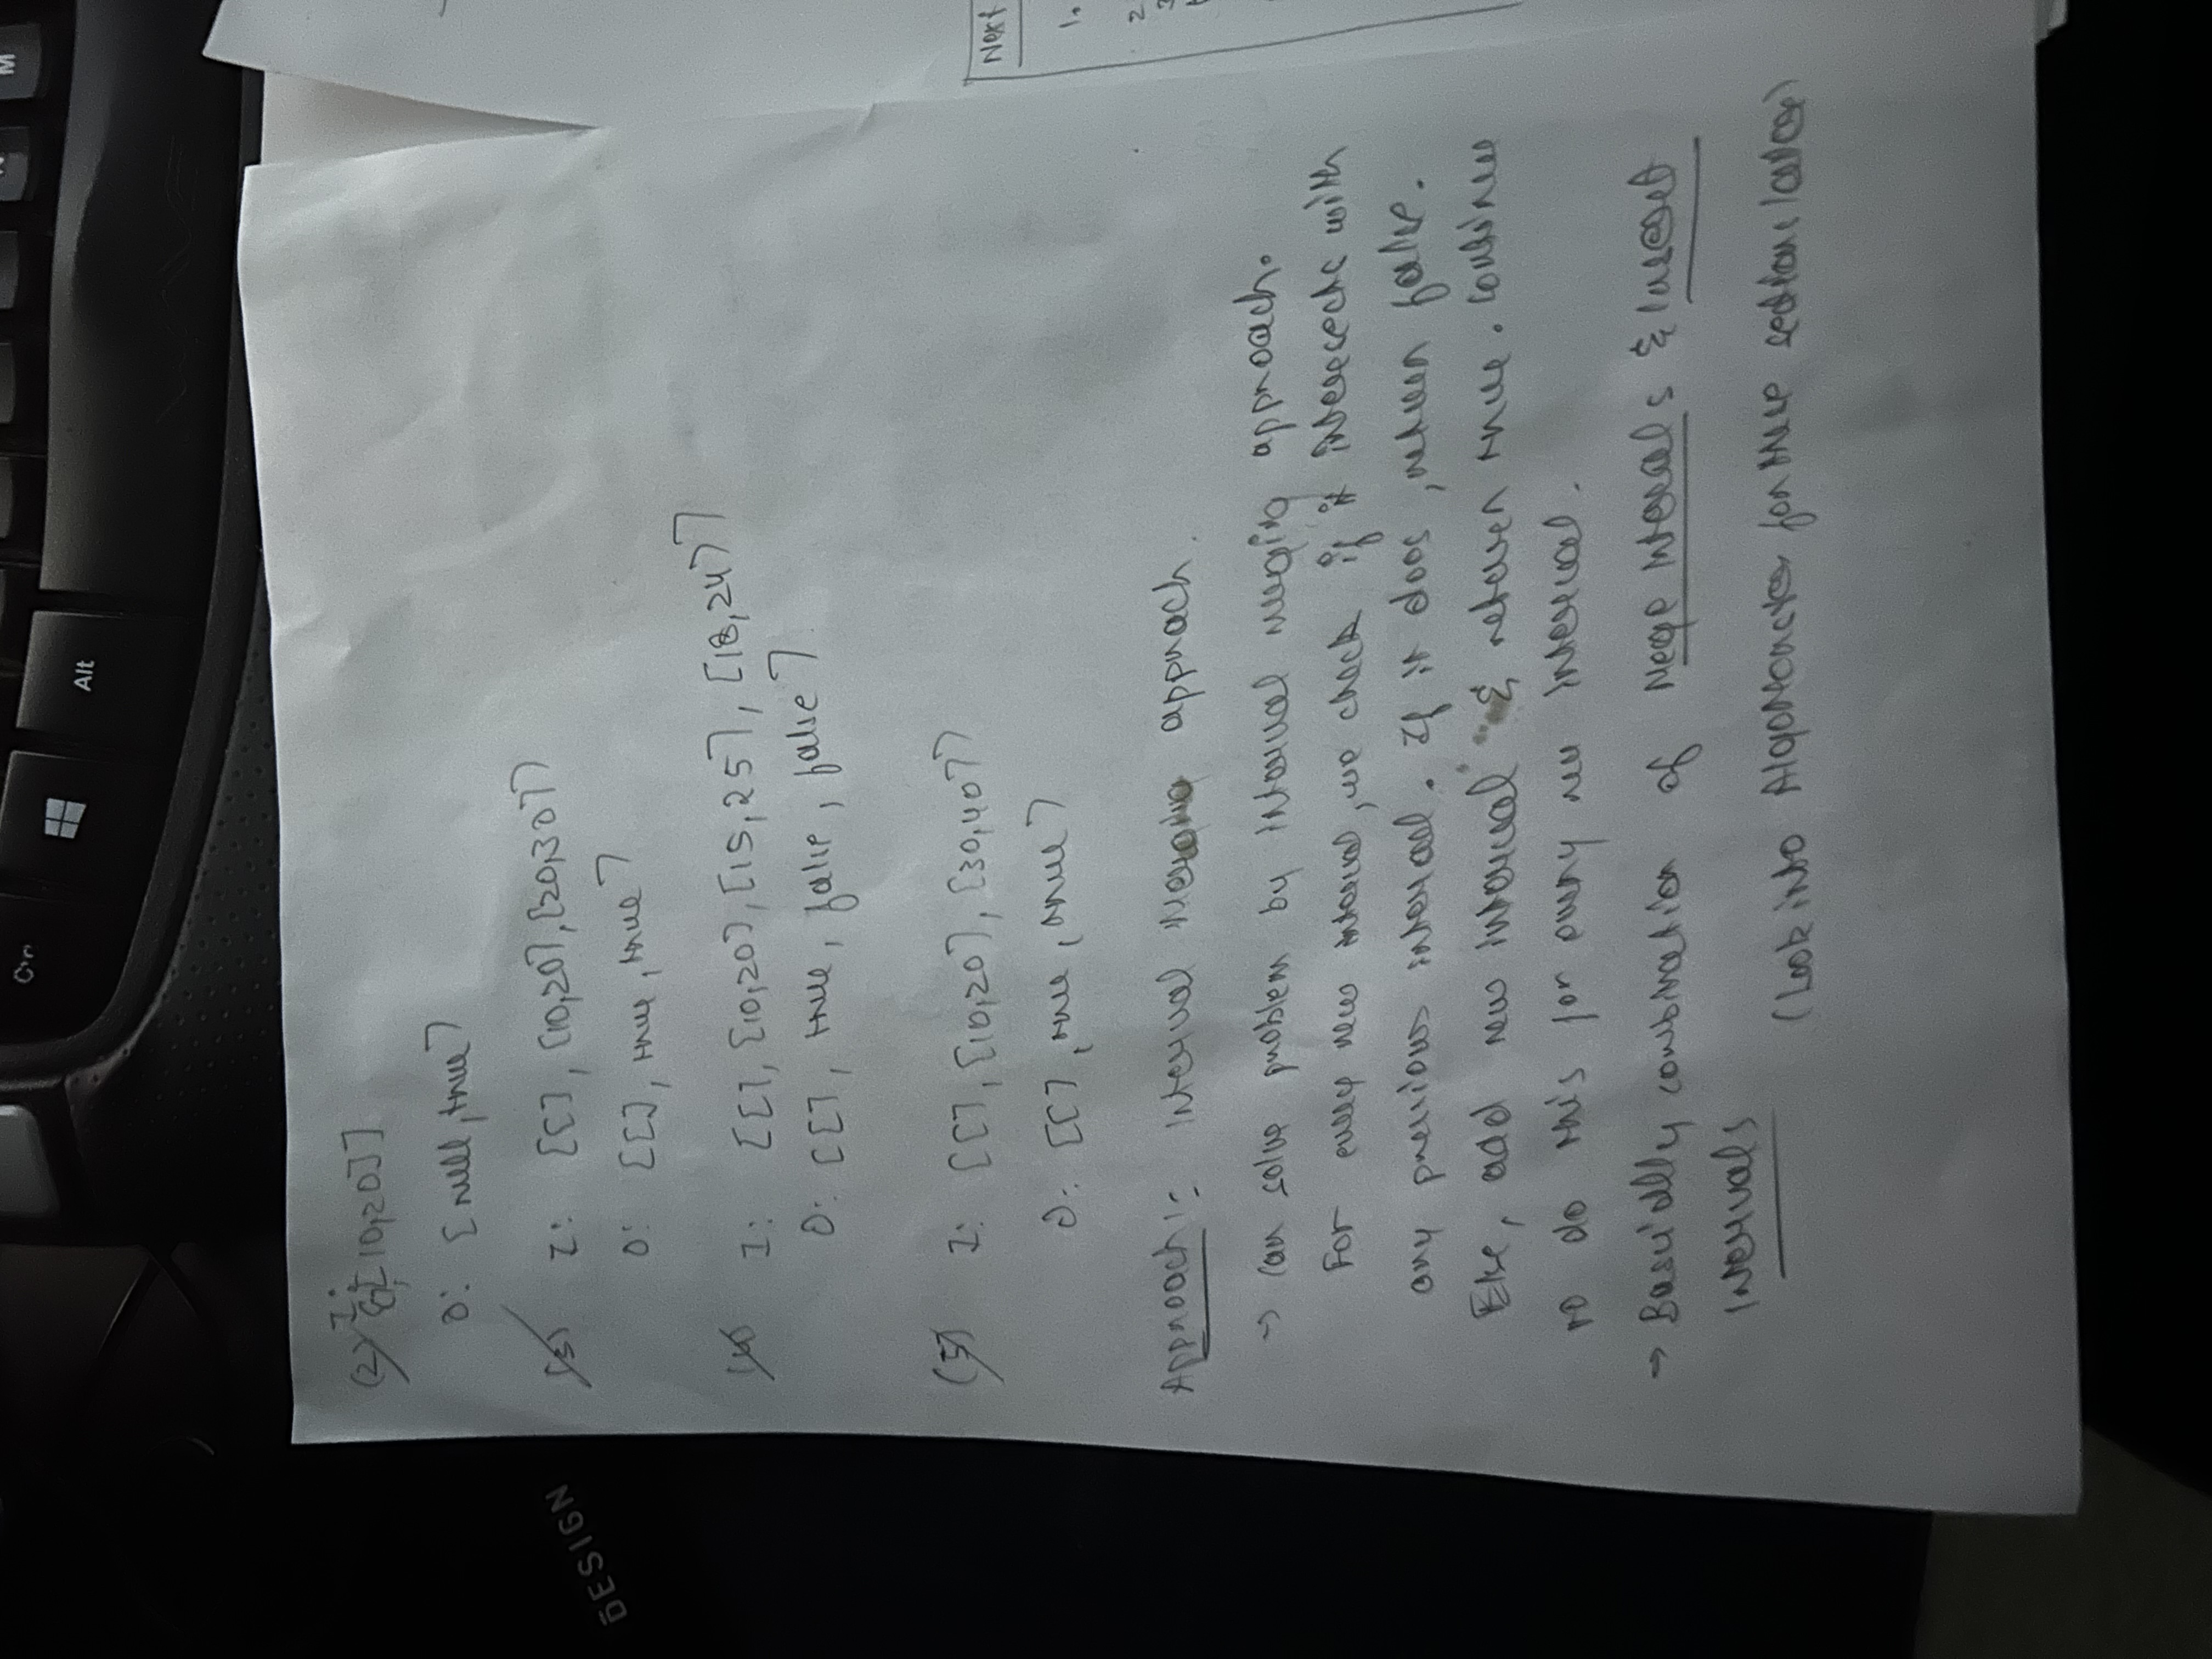 Ctr
Alt
N
M
DESIGN
(2) I: [[10,20]]
O: [null, true]
(3) I: [[], [10,20], [20,30]]
O: [[], true, true]
(4) I: [[], [10,20], [15,25], [18,24]]
O: [[], true, false, false]
(5) I: [[], [10,20], [30,40]]
O: [[], true, true]
Approach:- Interval Merging approach.
→ Can solve problem by interval merging approach.
For every new interval, we check if it intersects with
any previous interval. If it does, return false.
Else, add new interval & return true. Continue
to do this for every new interval.
→ Basically combination of Merge Intervals & Insert
Intervals
(Look into AlgoMonster for these
Next
1.
2
3